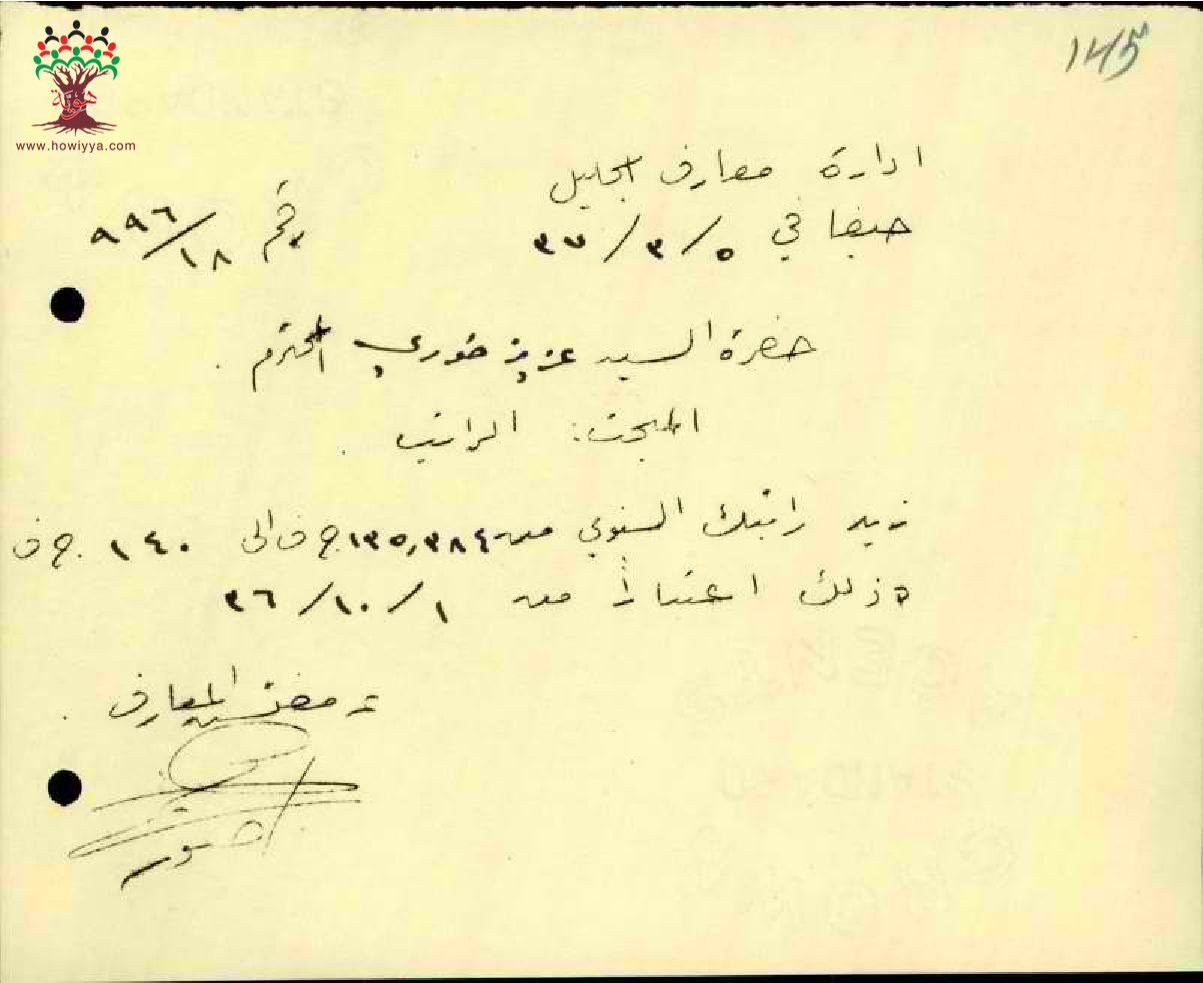 145
هوية
www.howiyya.com
ادارة معارف الجليل
حيفا في ٥/٣/٣٧ رقم ٩٩٦/١٨
حضرة السيد عزيز خوري المحترم .
المبحث: الراتب .
زيد راتبك السنوي من ١٣٥,٣٨٤ ج ف الى ١٤٠ ج ف
وذلك اعتباراً من ١/١٠/٣٦
مفتش المعارف .